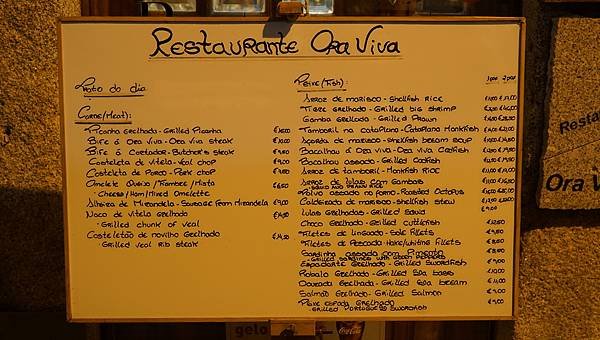 Restaurante Ora Viva
Prato do dia
Carne(Meat):
Picanha Grelhada - Grilled Picanha
Bife á Ora Viva - Ora Viva steak
Bife á Cortador - Butcher's steak €9.80
Costeleta de vitela - veal chop €9.00
Costeleta de Porco - Pork chop €7.80
Omelete Queijo/Fiambre/Mista €6.50
- Cheese/Ham/Mixed Omelette
Alheira de Mirandela - Sausage from Mirandela €9.00
Naco de vitela grelhado
- Grilled chunk of veal
Costeletão de novilho Grelhado €14.50
- Grilled veal rib steak
Peixe (Fish): 1 pax 2 pax
Arroz de marisco - Shellfish rice
Tigre grelhado - Grilled big shrimp
Gamba grelhado - Grilled Prawn
Tamboril na cataplana - Cataplana Monkfish
Açorda de marisco - Shellfish bream soup
Bacalhau á Ora viva - Ora viva Codfish
Bacalhau assado - Grilled Codfish
Arroz de tamboril - Monkfish Rice
Arroz de lulas com Gambas
Squid and prawn rice
Polvo assado no forno - Roasted Octopus
Caldeirada de marisco - Shellfish stew
Lulas Grelhadas - Grilled Squid €9,00
Choco Grelhado - Grilled cuttlefish
Filetes de Linguado - Sole Fillets €8.50
Filetes de Pescada - Hake/whiting fillets
Sardinha assada com Pimento
Grilled sardines with green peppers
Espadarte Grelhado - Grilled Swordfish €9.00
Robalo Grelhado - Grilled Sea bass €10,00
Dourada Grelhada - Grilled Sea bream €11,00
Salmão Grelhado - Grilled Salmon €9,00
Peixe espada Grelhado €9,00
Grilled Portuguese Swordfish
Resta
Ora V
gelo
Coca-Cola